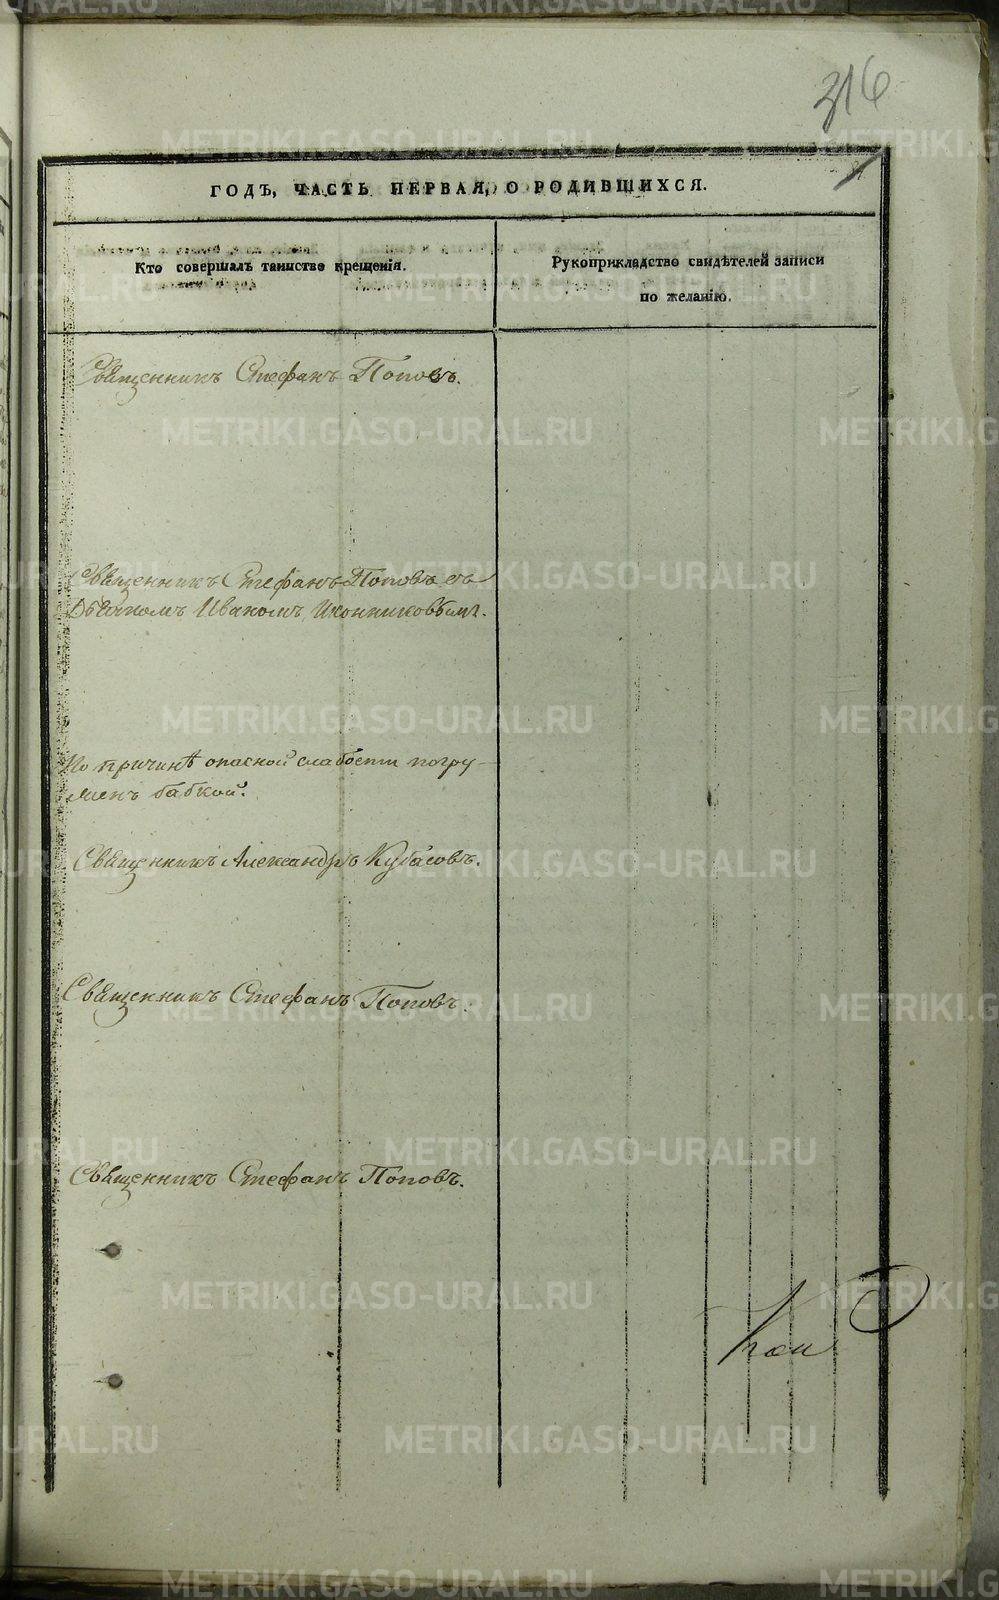 316
ГОДЪ, ЧАСТЬ ПЕРВАЯ, О РОДИВШИХСЯ.
Кто совершалъ таинство крещенія.
Рукоприкладство свидѣтелей записи
по желанію.
Священникъ Стефанъ Поповъ.
Священникъ Стефанъ Поповъ съ
Дьячкомъ Иваномъ Иконниковымъ.
По причинѣ опасной слабости погру-
женъ бабкой.
Священникъ Александръ Кубасовъ.
Священникъ Стефанъ Поповъ.
Священникъ Стефанъ Поповъ.
METRIKI.GASO-URAL.RU